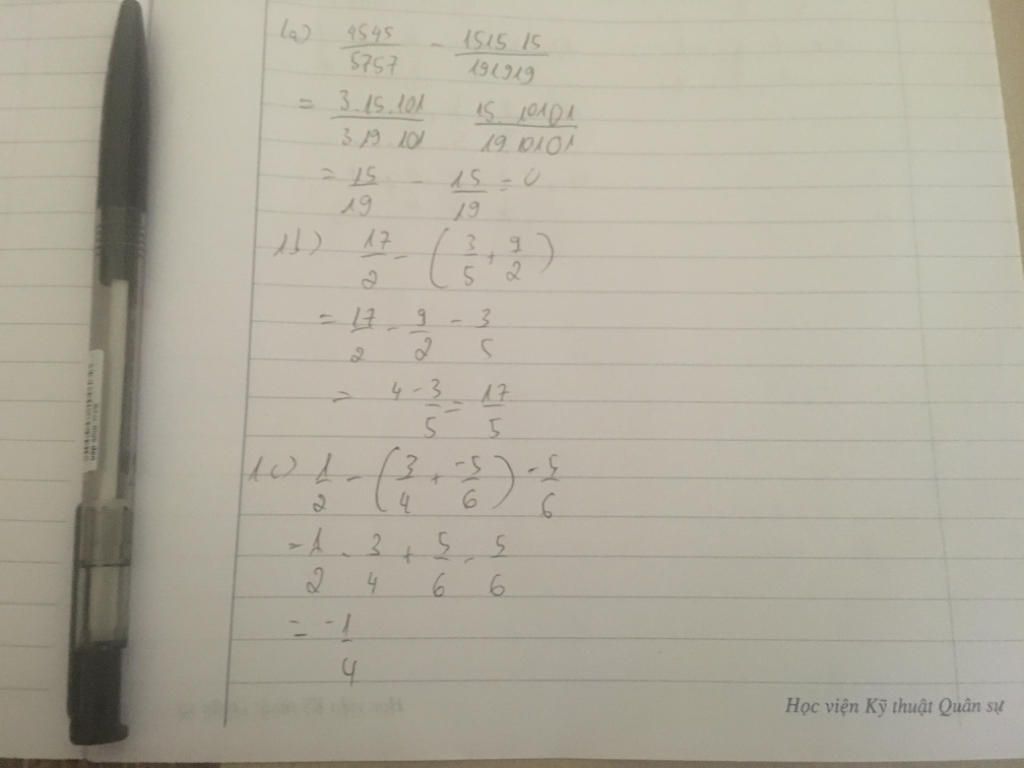 1a) 4545/5757 - 151515/191919
= 3.15.101/3.19.101 15.10101/19.10101
= 15/19 - 15/19 = 0
1b) 17/2 - (3/5 + 9/2)
= 17/2 - 9/2 - 3/5
= 4 - 3/5 = 17/5
1c) 1/2 - (3/4 + -5/6) - 5/6
= 1/2 - 3/4 + 5/6 - 5/6
= -1/4
Học viện Kỹ thuật Quân sự